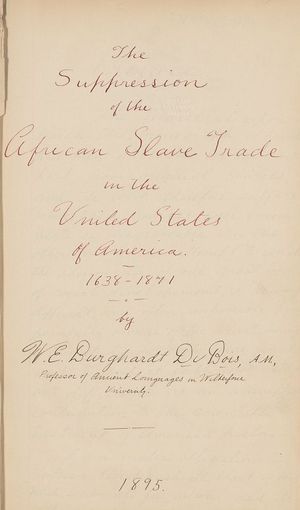 The
Suppression
of the
African Slave Trade
in the
United States
of America.
1638-1871
by
W. E. Burghardt Du Bois, A.M.,
Professor of Ancient Languages in Wilberforce
University.
1895.